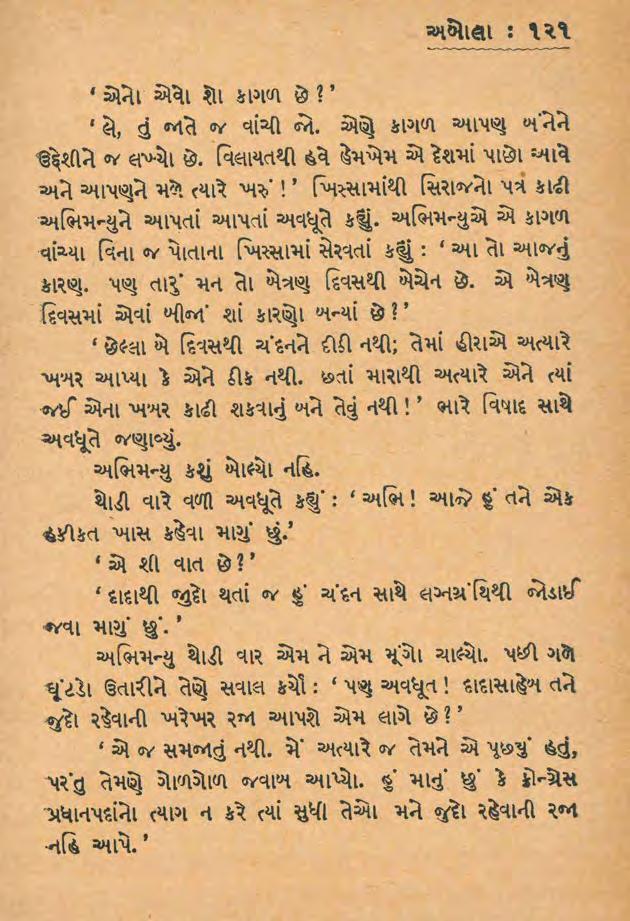 અબોલા : ૧૨૧
‘ એનો એવો શો કાગળ છે ? ’
‘ લે, તું જાતે જ વાંચી જો. એણે કાગળ આપણ બંનેને
ઉદ્દેશીને જ લખ્યો છે. વિલાયતથી હવે હેમખેમ એ દેશમાં પાછો આવે
અને આપણને મળે ત્યારે ખરું ! ’ ખિસ્સામાંથી સિરાજનો પત્ર કાઢી
અભિમન્યુને આપતાં આપતાં અવધૂતે કહ્યું. અભિમન્યુએ એ કાગળ
વાંચ્યા વિના જ પોતાના ખિસ્સામાં સેરવતાં કહ્યું : ‘ આ તો આજનું
કારણ. પણ તારું મન તો બેત્રણ દિવસથી બેચેન છે. એ બેત્રણ
દિવસમાં એવાં બીજાં શાં કારણો બન્યાં છે ? ’
‘ છેલ્લા બે દિવસથી ચંદનને દીઠી નથી; તેમાં હીરાએ અત્યારે
ખબર આપ્યા કે એને ઠીક નથી. છતાં મારાથી અત્યારે એને ત્યાં
જઈ એના ખબર કાઢી શકવાનું બને તેવું નથી ! ’ ભારે વિષાદ સાથે
અવધૂતે જણાવ્યું.
અભિમન્યુ કશું બોલ્યો નહિ.
થોડી વારે વળી અવધૂતે કહ્યું : ‘ અભિ ! આજે હું તને એક
હકીકત ખાસ કહેવા માગું છું. ’
‘ એ શી વાત છે ? ’
‘ દાદાથી જુદો થતાં જ હું ચંદન સાથે લગ્નગ્રંથિથી જોડાઈ
જવા માગું છું. ’
અભિમન્યુ થોડી વાર એમ ને એમ મૂંગો ચાલ્યો. પછી ગળે
ઘૂંટડો ઉતારીને તેણે સવાલ કર્યો : ‘ પણ અવધૂત ! દાદાસાહેબ તને
જુદો રહેવાની ખરેખર રજા આપશે એમ લાગે છે ? ’
‘ એ જ સમજાતું નથી. મેં અત્યારે જ તેમને એ પૂછ્યું હતું,
પરંતુ તેમણે ગોળગોળ જવાબ આપ્યો. હું માનું છું કે કોન્ગ્રેસ
પ્રધાનપદાંનો ત્યાગ ન કરે ત્યાં સુધી તેઓ મને જુદો રહેવાની રજા
નહિ આપે. ’